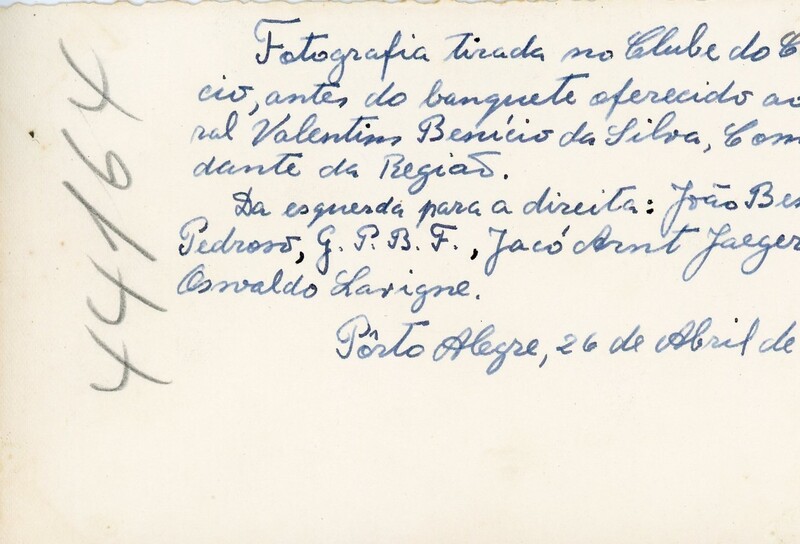 Fotografia tirada no Clube do C
cio, antes do banquete oferecido ao
ral Valentim Benício da Silva, Com
dante da Região.
Da esquerda para a direita: João Be
Pedroso, G. P. B. F., Jacó Arnt Jaeger
Osvaldo Lavigne.
Pôrto Alegre, 26 de Abril de
44164